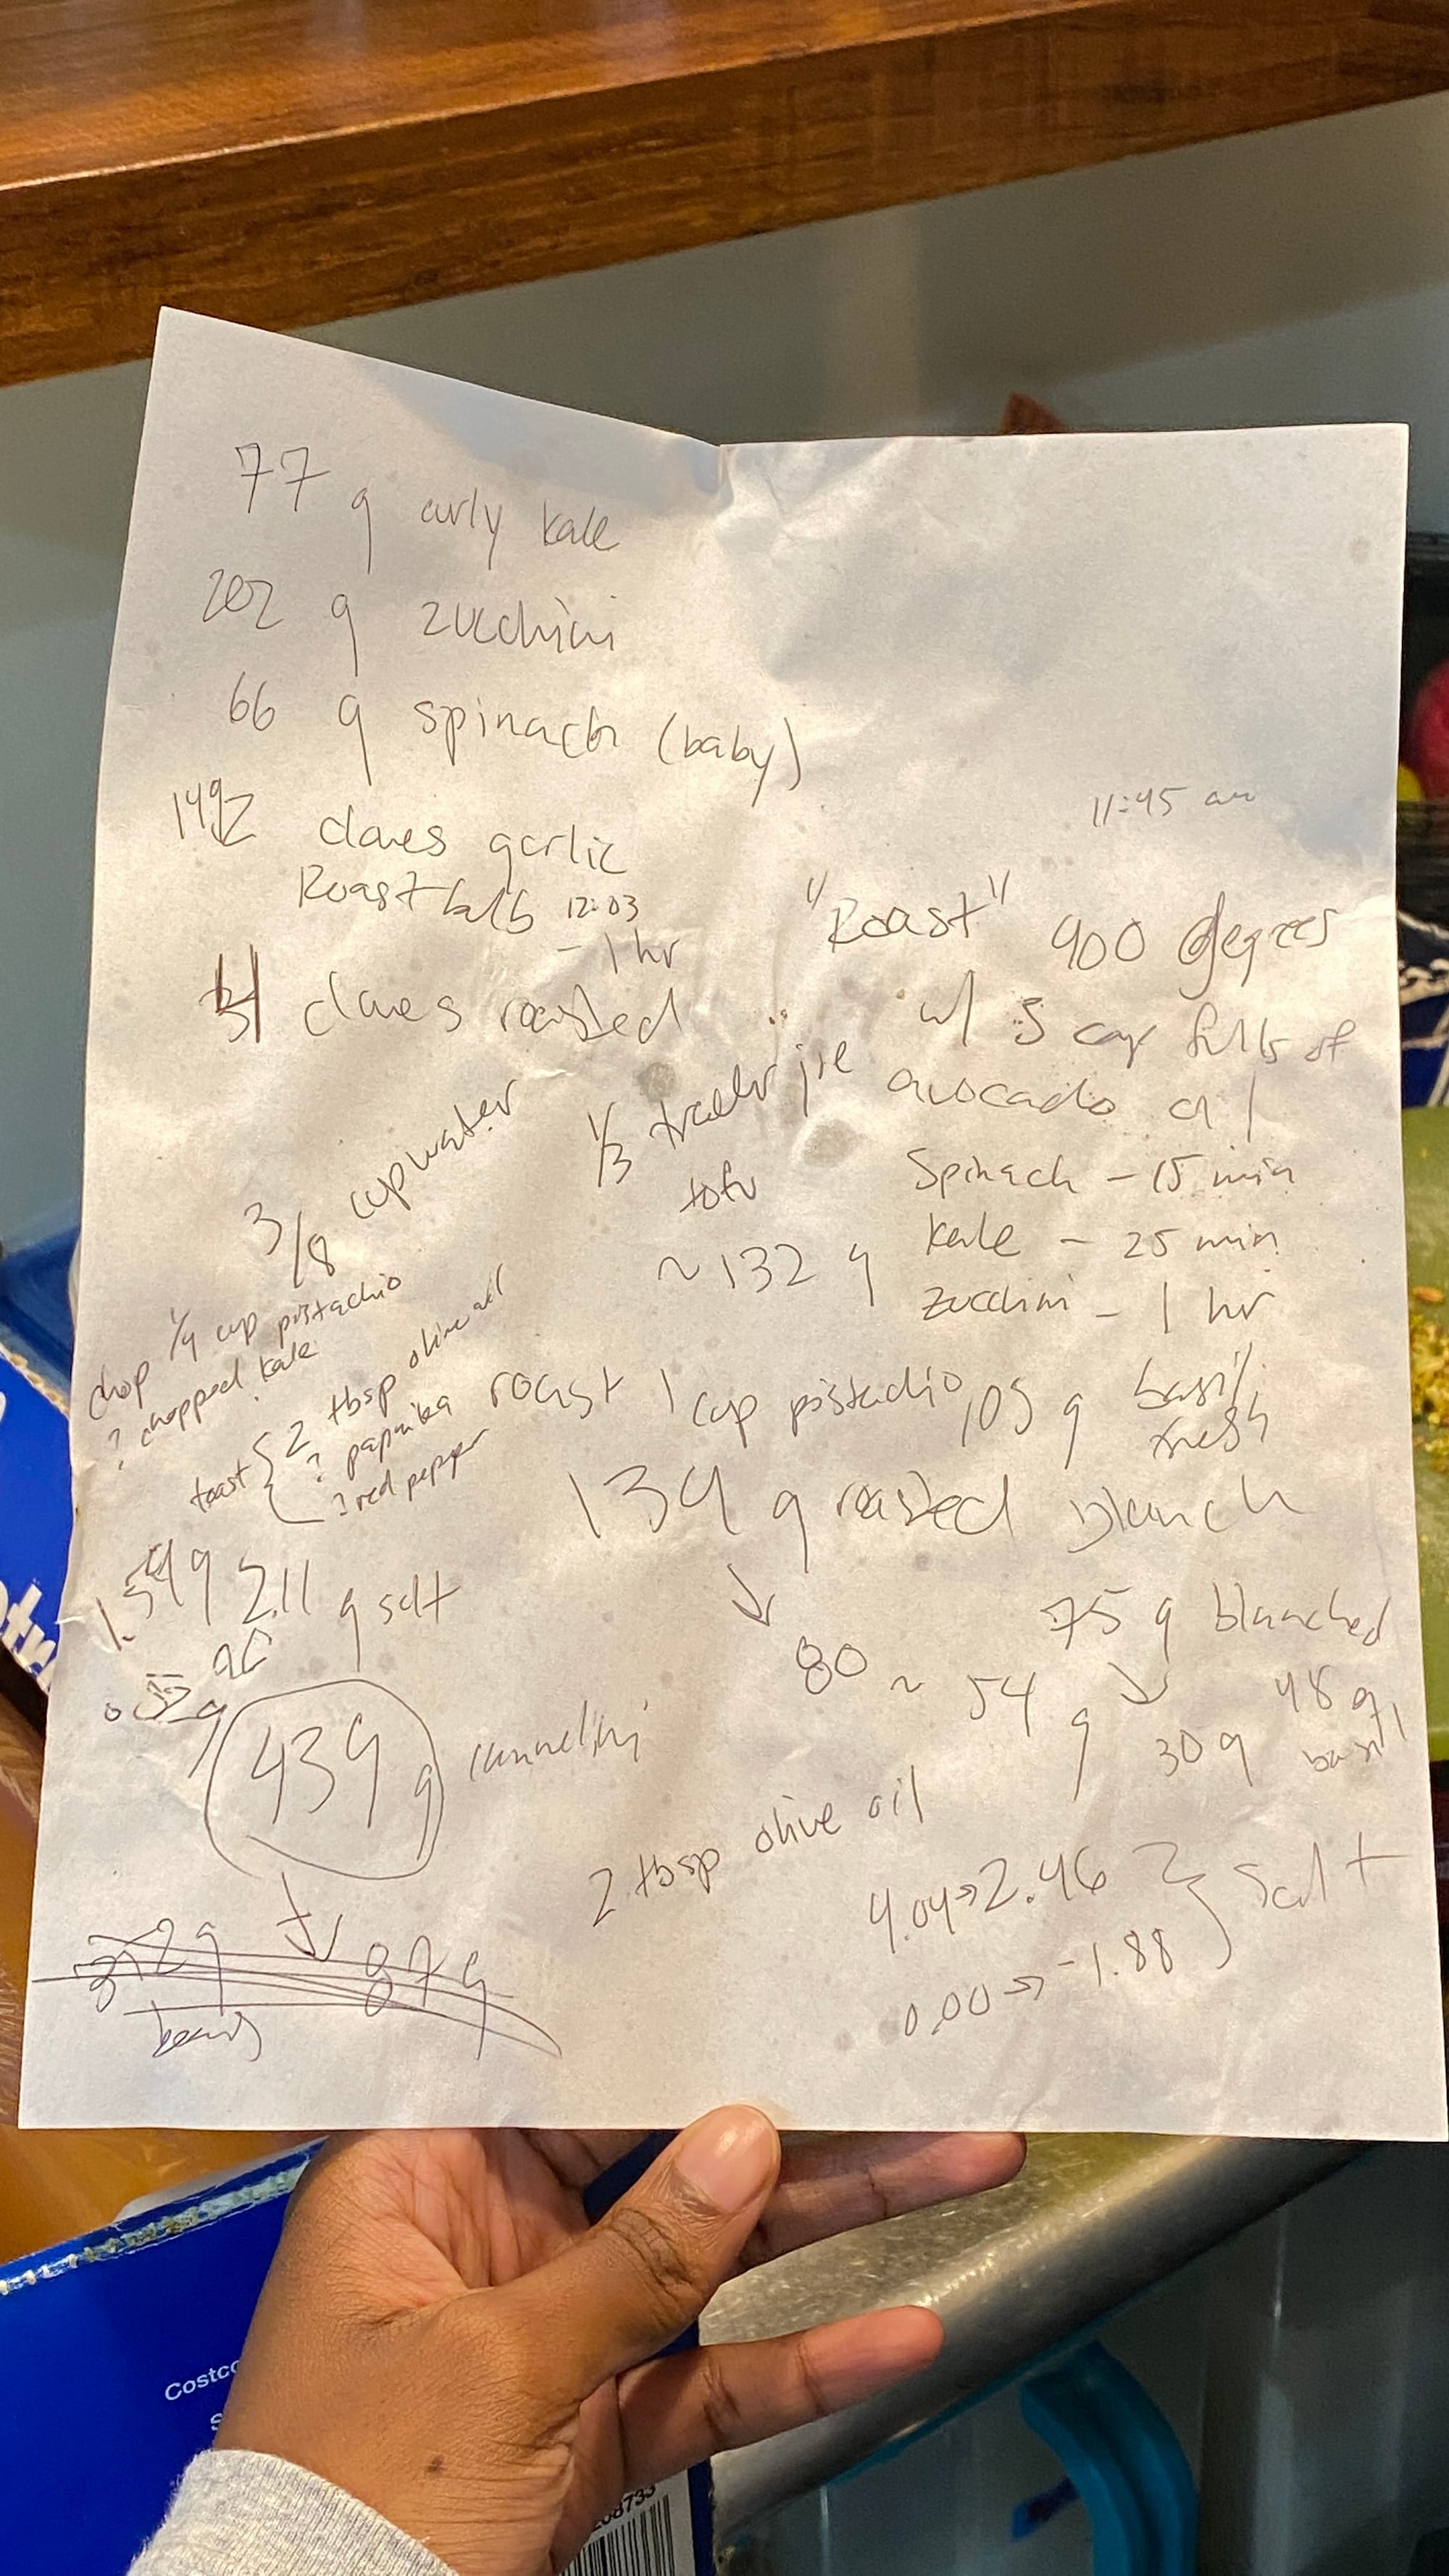 77 g curly kale
202 g zucchini
66 g spinach (baby)
2 cloves garlic
Roast bulb 12:03
- 1 hr
cloves roasted
11:45 am
"Roast" 400 degrees
w/ 5 cap fulls of
avocado oil
Spinach - 15 min
kale - 25 min
zucchini - 1 hr
3/8 cup water
1/3 trader joe
tofu
~132 g
chop 1/4 cup pistachio
? chopped kale
toast { 2 tbsp olive oil
? paprika
? red pepper
roast 1 cup pistachio
105 g basil
fresh
134 g roasted
blanch
↓
80 ~ 54 g
75 g blanched
↓
30 g
48 g
basil
2.11 g salt
434 g cannellini
↓
87 g
beans
2 tbsp olive oil
4.04 → 2.46 } salt
0.00 → -1.88
Costco